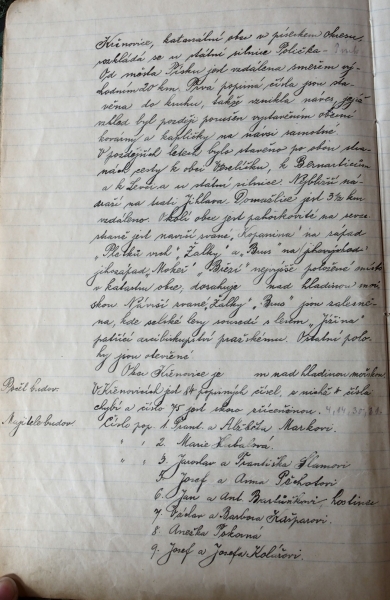 Křenovice, katastrální obec v píseckém okresu,
rozkládá se u státní silnice Polička -
Od města Písku jest vzdálena směrem vý-
chodním 20 km. Prvá popisná čísla jsou sta-
věna do kruhu, takže vznikla náves, jejíž
vzhled byl později porušen vystavěním obecní
kovárny a kapličky na návsi samotné
V pozdějších letech bylo stavěno po obou stra-
nách cesty k obci Veselíčku, k Bernarticům
a k a u státní silnice. Nejbližší ná-
draží na trati Jihlava Domažlice jest 3½ km
vzdáleno. Okolí obce jest pahorkovité na severní
straně jest návrší zvané „Kopanina" na západ
„Pletků vrch" „Žalky" a „Bus" na jihovýchod
jihozápad „Mokeš" „Březí" nejvýše položené místo
v katastru obce, dosahuje nad hladinou moř-
skou. Návrší zvané „Žalky" „Bus" jsou zalesně-
na, kde selské lesy sousedí s lesem „Jiřina"
patřící arcibiskupství pražskému. Ostatní polo-
hy jsou otevřené.
Obec Křenovice je m nad hladinou mořskou.
Počet budov. V Křenovicích jest 84 popisných čísel, z nichž 4 čísla
chybí a číslo 75 jest skoro zříceninou.
Majitelé budov. Číslo pop. 1. Frant. a Alžběta Markovi.
" " 2. Marie
" " 3. Jaroslav a Františka Slamovi
5. Josef a Anna Pěchotovi
6. Jan a Ant. Bartůňkovi, hostinec
7. Václav a Barbora Kašparovi.
8. Anežka Pokorná
9. Josef a Josefa Kolářovi.